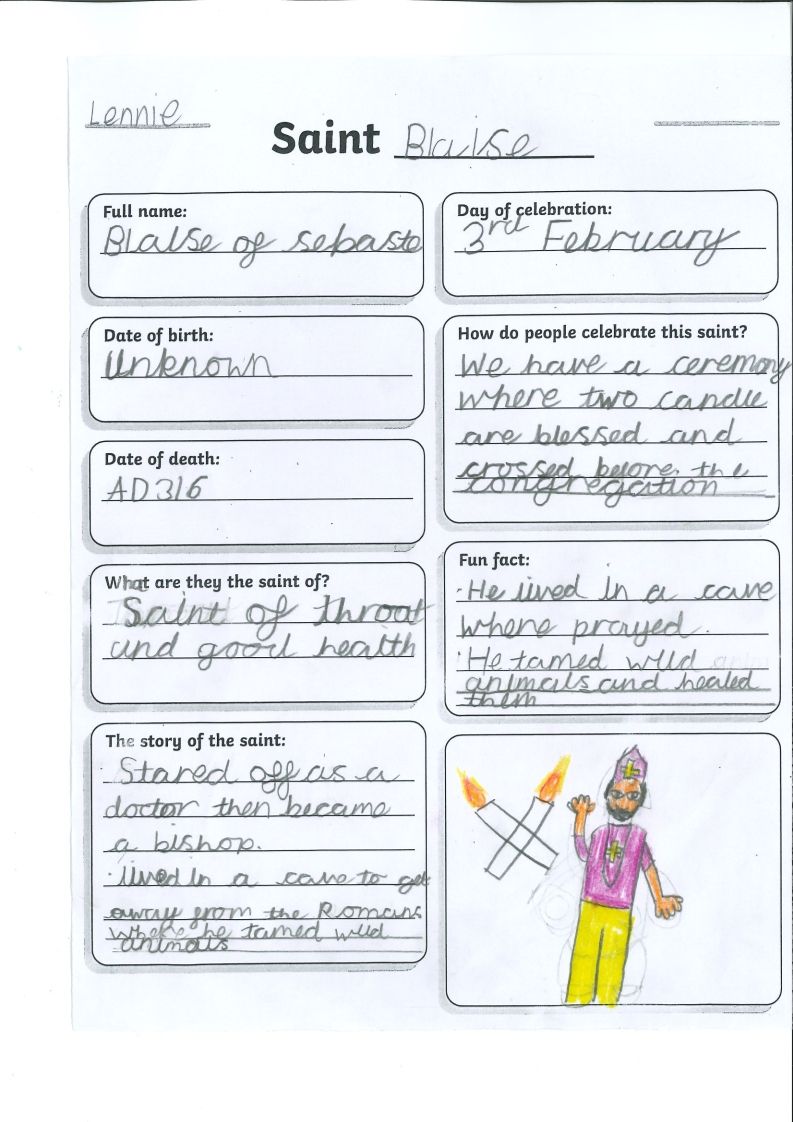 Lennie
Saint Blaise
Full name:
Blaise of sebaste
Day of celebration:
3rd February
Date of birth:
Unknown
How do people celebrate this saint?
We have a ceremony
where two candle
are blessed and
crossed before the
congregation
Date of death:
AD 316
What are they the saint of?
Saint of throat
and good health
Fun fact:
·He lived in a cave
where prayed.
·He tamed wild anim
animals and healed
them
The story of the saint:
·Stared off as a
doctor then became
a bishop.
·lived in a cave to get
away from the Romans
where he tamed wild
animals